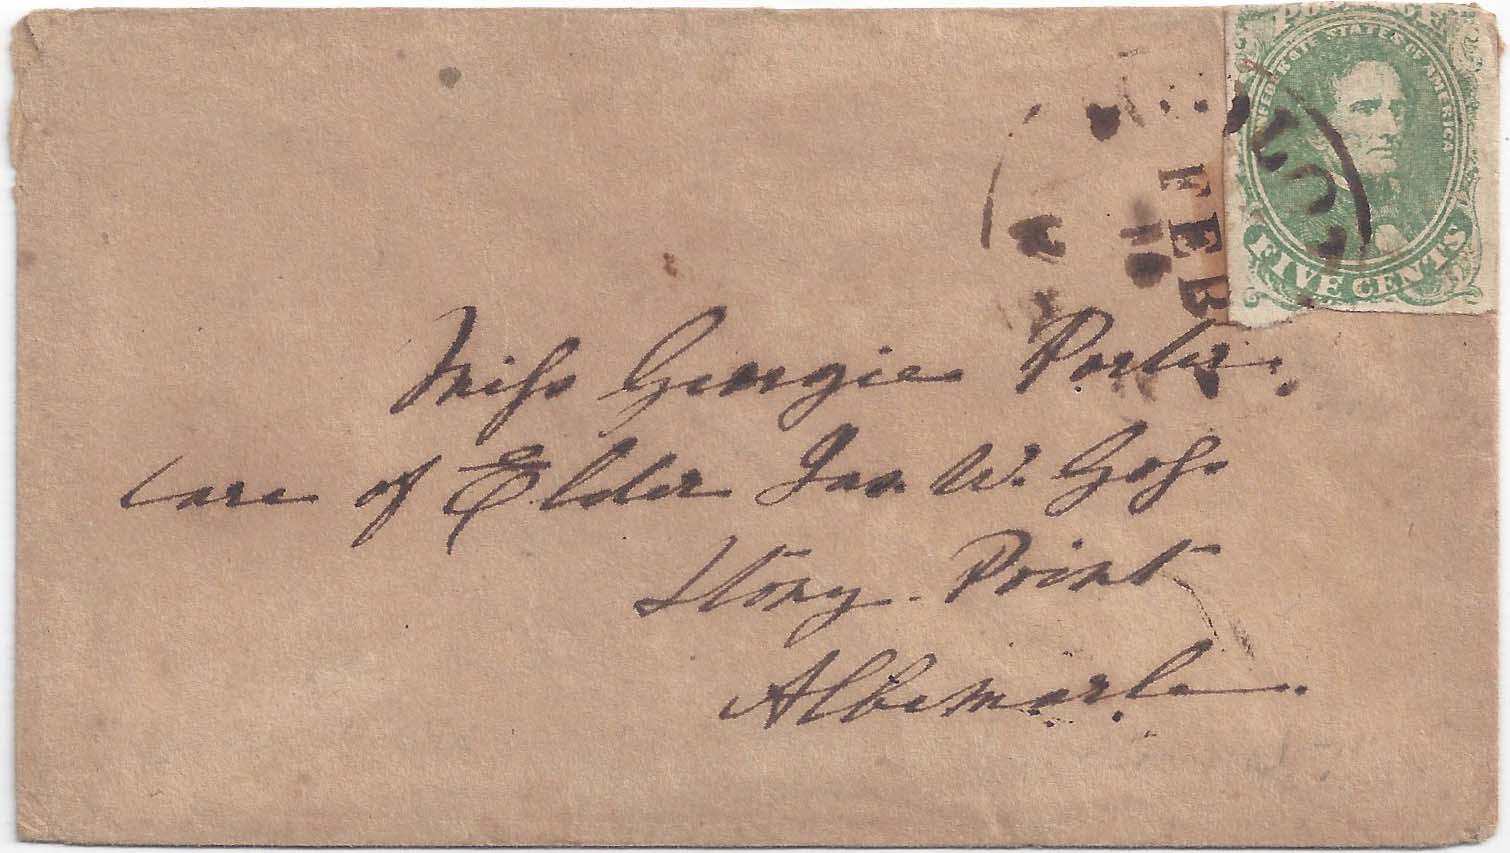 POSTAGE
CONFEDERATE STATES OF AMERICA
FIVE CENTS
FEB
Miss Georgie Porter.
Care of Elder Jas. W. Goss
Stony Point
Albemarle.